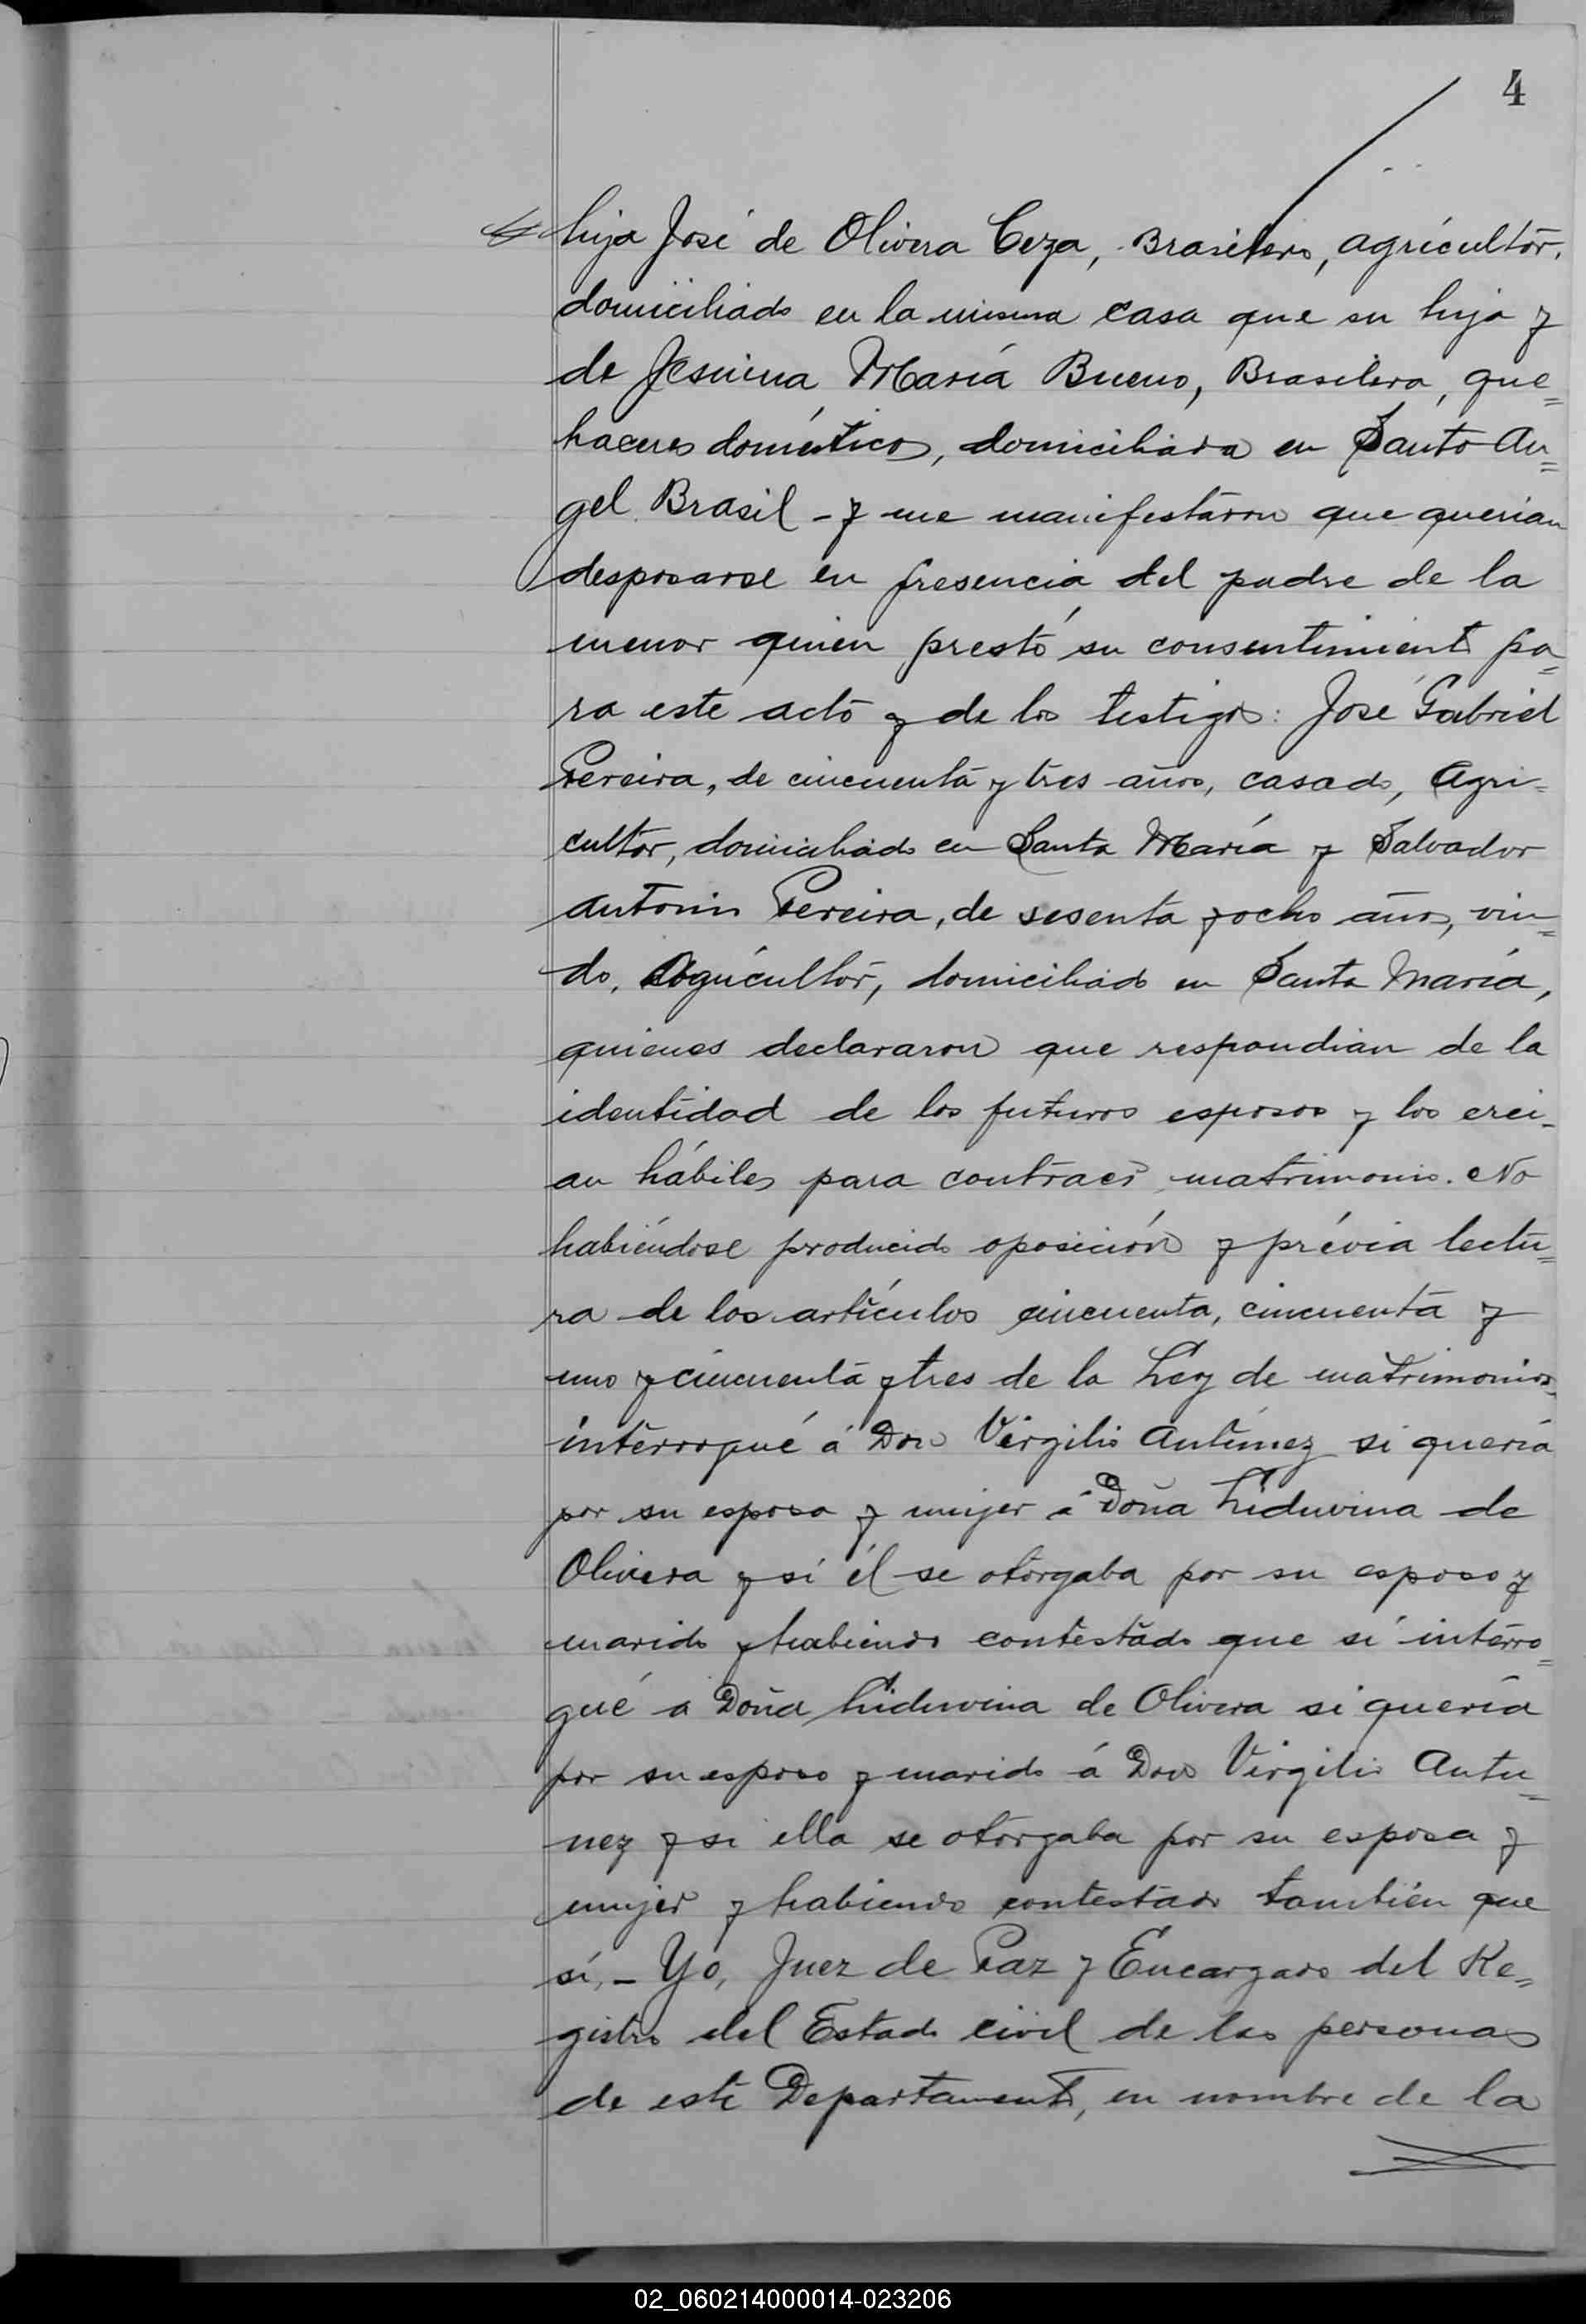 4
hija José de Olivera Ceza, Brasilero, agricultor,
domiciliado en la misma casa que su hija y
de Jesuina María Bueno, Brasilera, que=
haceres domésticos, domiciliada en Santo An=
gel Brasil - y me manifestaron que querian
desposarse en presencia del padre de la
menor quien prestó su consentimiento pa=
ra este acto y de los testigos: José Gabriel
Pereira, de cincuenta y tres años, casado, Agri=
cultor, domiciliado en Santa María y Salvador
Antonio Pereira, de sesenta y ocho años, viu=
do, Agricultor, domiciliado en Santa María,
quienes declararon que respondian de la
identidad de los futuros esposos y los crei-
an hábiles para contraer matrimonio. No
habiéndose producido oposición y prévia lectu=
ra de los artículos cincuenta, cincuenta y
uno y cincuenta y tres de la Ley de matrimonio,
interrogué á Don Virgilio Antunez si quería
por su esposa y mujer á Doña Liduvina de
Olivera y si él se otorgaba por su esposo y
marido y habiendo contestado que sí interro=
gué a Doña Liduvina de Olivera si quería
por su esposo y marido á Don Virgilio Antu=
nez y si ella se otorgaba por su esposa y
mujer y habiendo contestado también que
sí, - Yo, Juez de Paz y Encargado del Re=
gistro del Estado civil de las personas
de este Departamento, en nombre de la
02_060214000014-023206